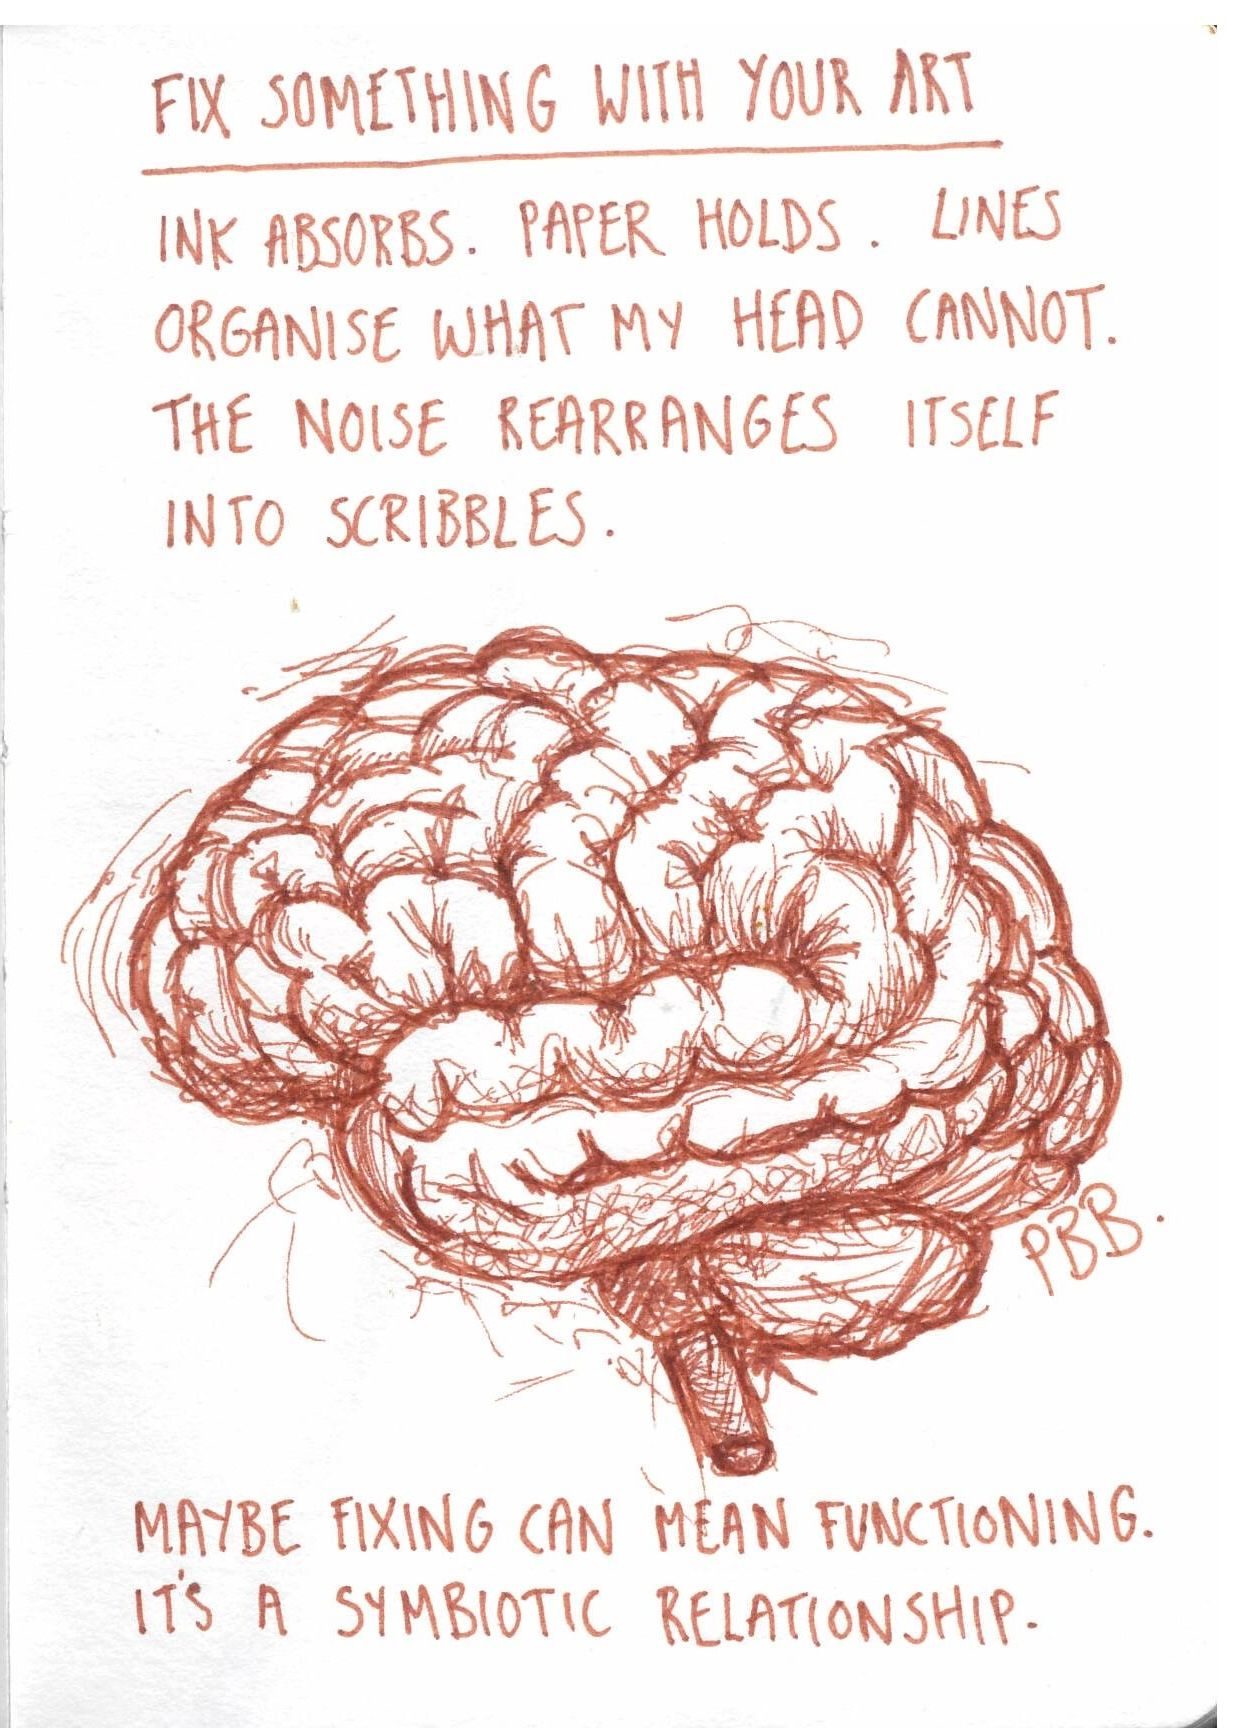 FIX SOMETHING WITH YOUR ART
INK ABSORBS. PAPER HOLDS. LINES
ORGANISE WHAT MY HEAD CANNOT.
THE NOISE REARRANGES ITSELF
INTO SCRIBBLES.
PBB.
MAYBE FIXING CAN MEAN FUNCTIONING.
IT'S A SYMBIOTIC RELATIONSHIP.